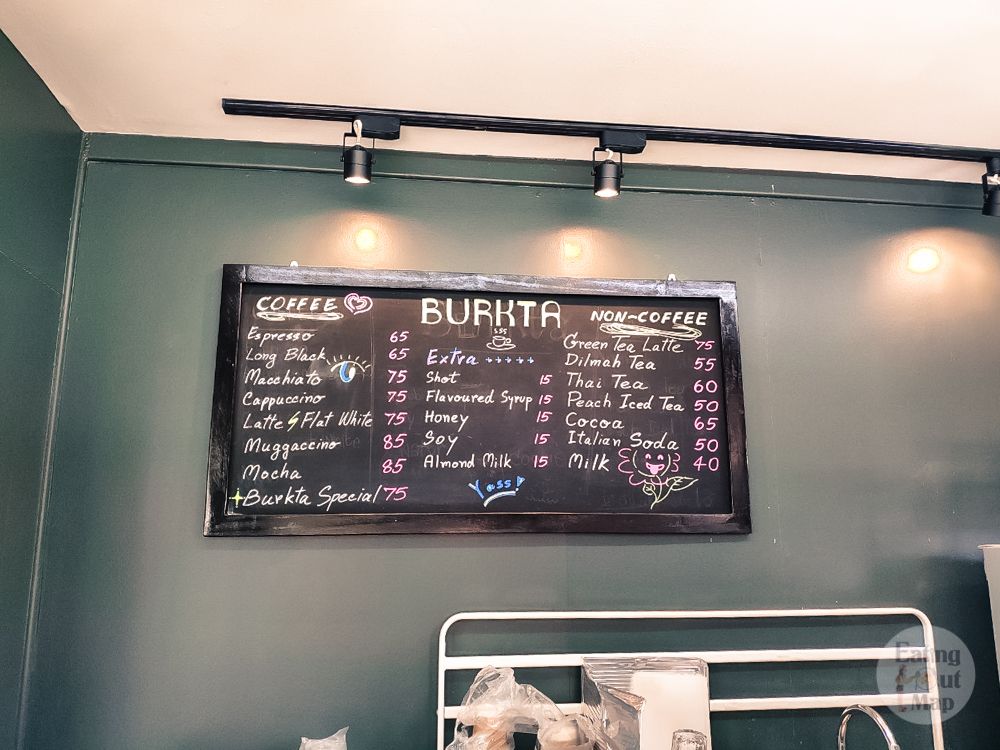 BURKTA
COFFEE
Espresso 65
Long Black 65
Macchiato 75
Cappuccino 75
Latte Flat White 75
Muggaccino 85
Mocha 85
Burkta Special 75
Extra
Shot 15
Flavoured Syrup 15
Honey 15
Soy 15
Almond Milk 15
Yass!
NON-COFFEE
Green Tea Latte 75
Dilmah Tea 55
Thai Tea 60
Peach Iced Tea 50
Cocoa 65
Italian Soda 50
Milk 40
Eating
Out
Map